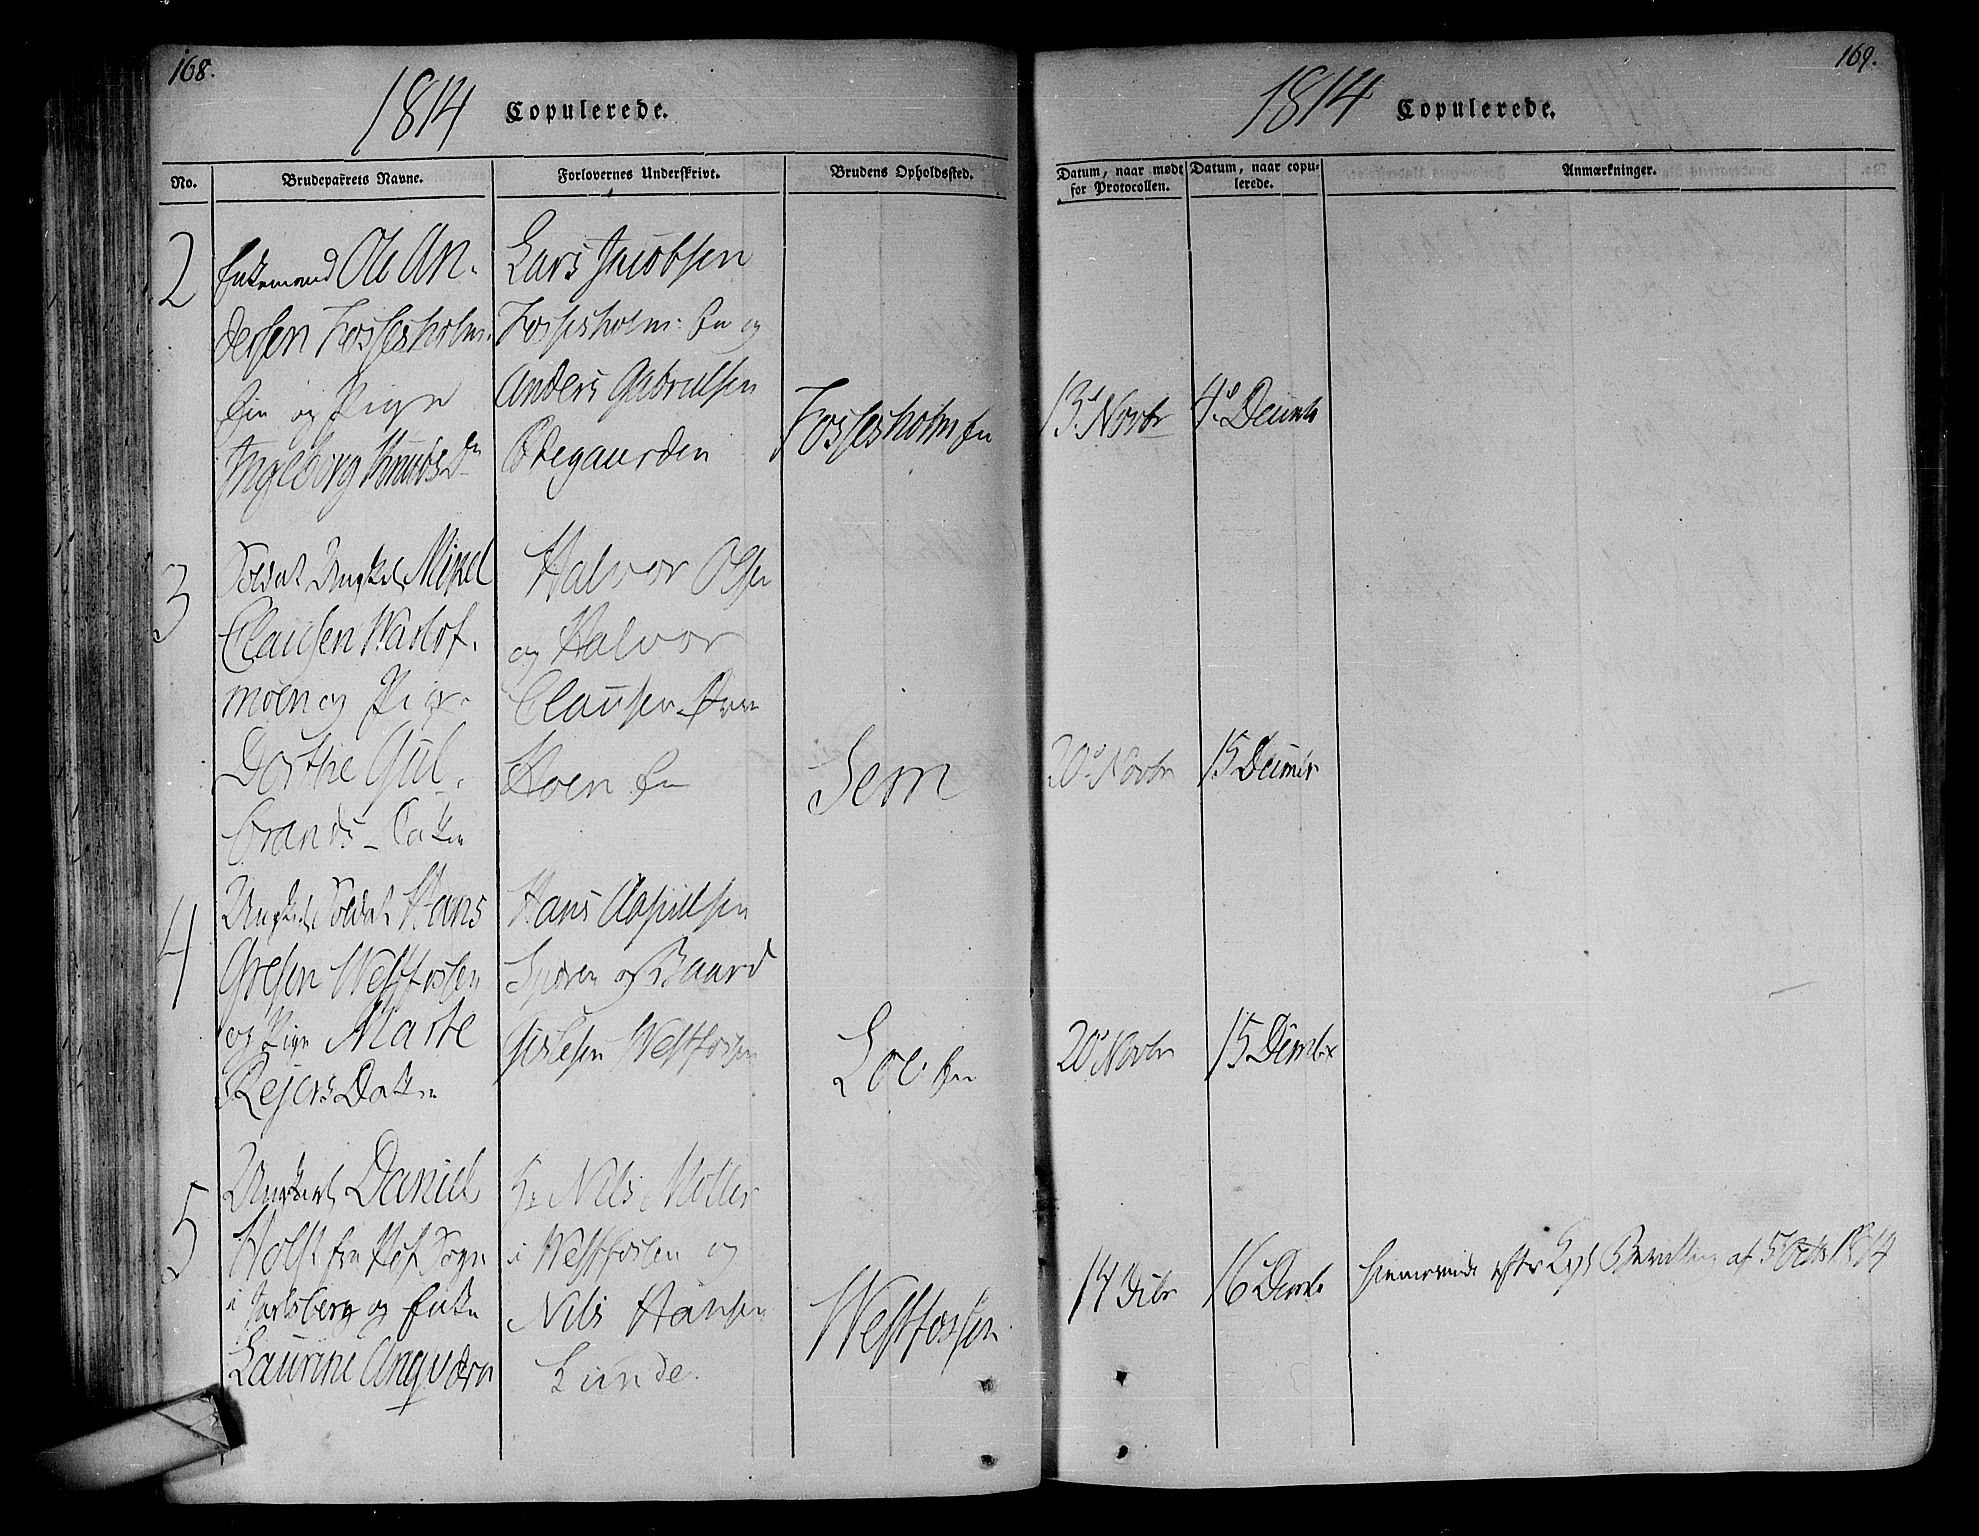 168.
1814 Copulerede.
No. Brudeparrets Navne. Forlovernes Underskrivt. Brudens Opholdssted.
2
Enkemand Ole An-
dersen Fossesholm
Eie og Pige
Ingeborg Knuds Dn
Lars Jacobsen
Fossesholm: Eie og
Anders Gabrielsen
Ødegaarden
Fossesholm Eie
3
Soldat Ungkl Mikel
Clausen Wadlof-
moen og Pige
Dorthe Gul-
brands-
Halvor Olsen
og Halvor
Clausen
Hoen Eie
Sem
4
Ungkl Soldat Hans
Giesen Westfossen
og Pige Marte
Rejers Datter
Hans
og Baard
Gislesen Westfossen
Loe Eie
5
Ungkarl Daniel
Holst fra Hof Sogn
i Jarlsberg og Enke
Laurine
Hr Nils Møller
i Westfossen og
Nils Hansen
Lunde.
Westfossen
169.
1814 Copulerede.
Datum, naar mødt for Protocollen. Datum, naar copulerede. Anmærkninger.
13d Novbr 4d Decemb
20d Novbr 15 Decembr
20d Novbr 15 Decmbr
14 Decbr 16 Decmb hiemmeviede efter Kgl Bevilling af 5 Octb 1814